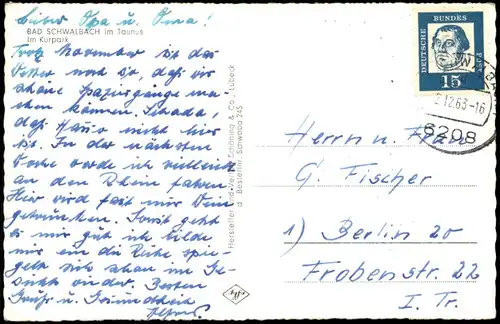 Lieber Opa u. Oma!
BAD SCHWALBACH im Taunus
Im Kurpark
Trotz November ist das
Wetter noch so, daß wir
schöne Spaziergänge ma-
chen können. Schade,
daß Hans nicht hier
ist. In der nächsten
Woche werde ich vielleicht
an den Rhein fahren.
Hier wird fast nur Wein
getrunken. Sonst geht
es mir gut ich bilde
mir ein die Ruhe spie-
gelt sich schon im Ge-
sicht wieder. Besten
Gruß u. Gesundheit
Hersteller und Verlag Schöning & Co., Lübeck
Bestellnr. Schwaba 245
DEUTSCHE BUNDES POST
15
12.63-16
6208
Herrn u. Frau
G. Fischer
1) Berlin 20
Frobenstr. 22
I. Tr.